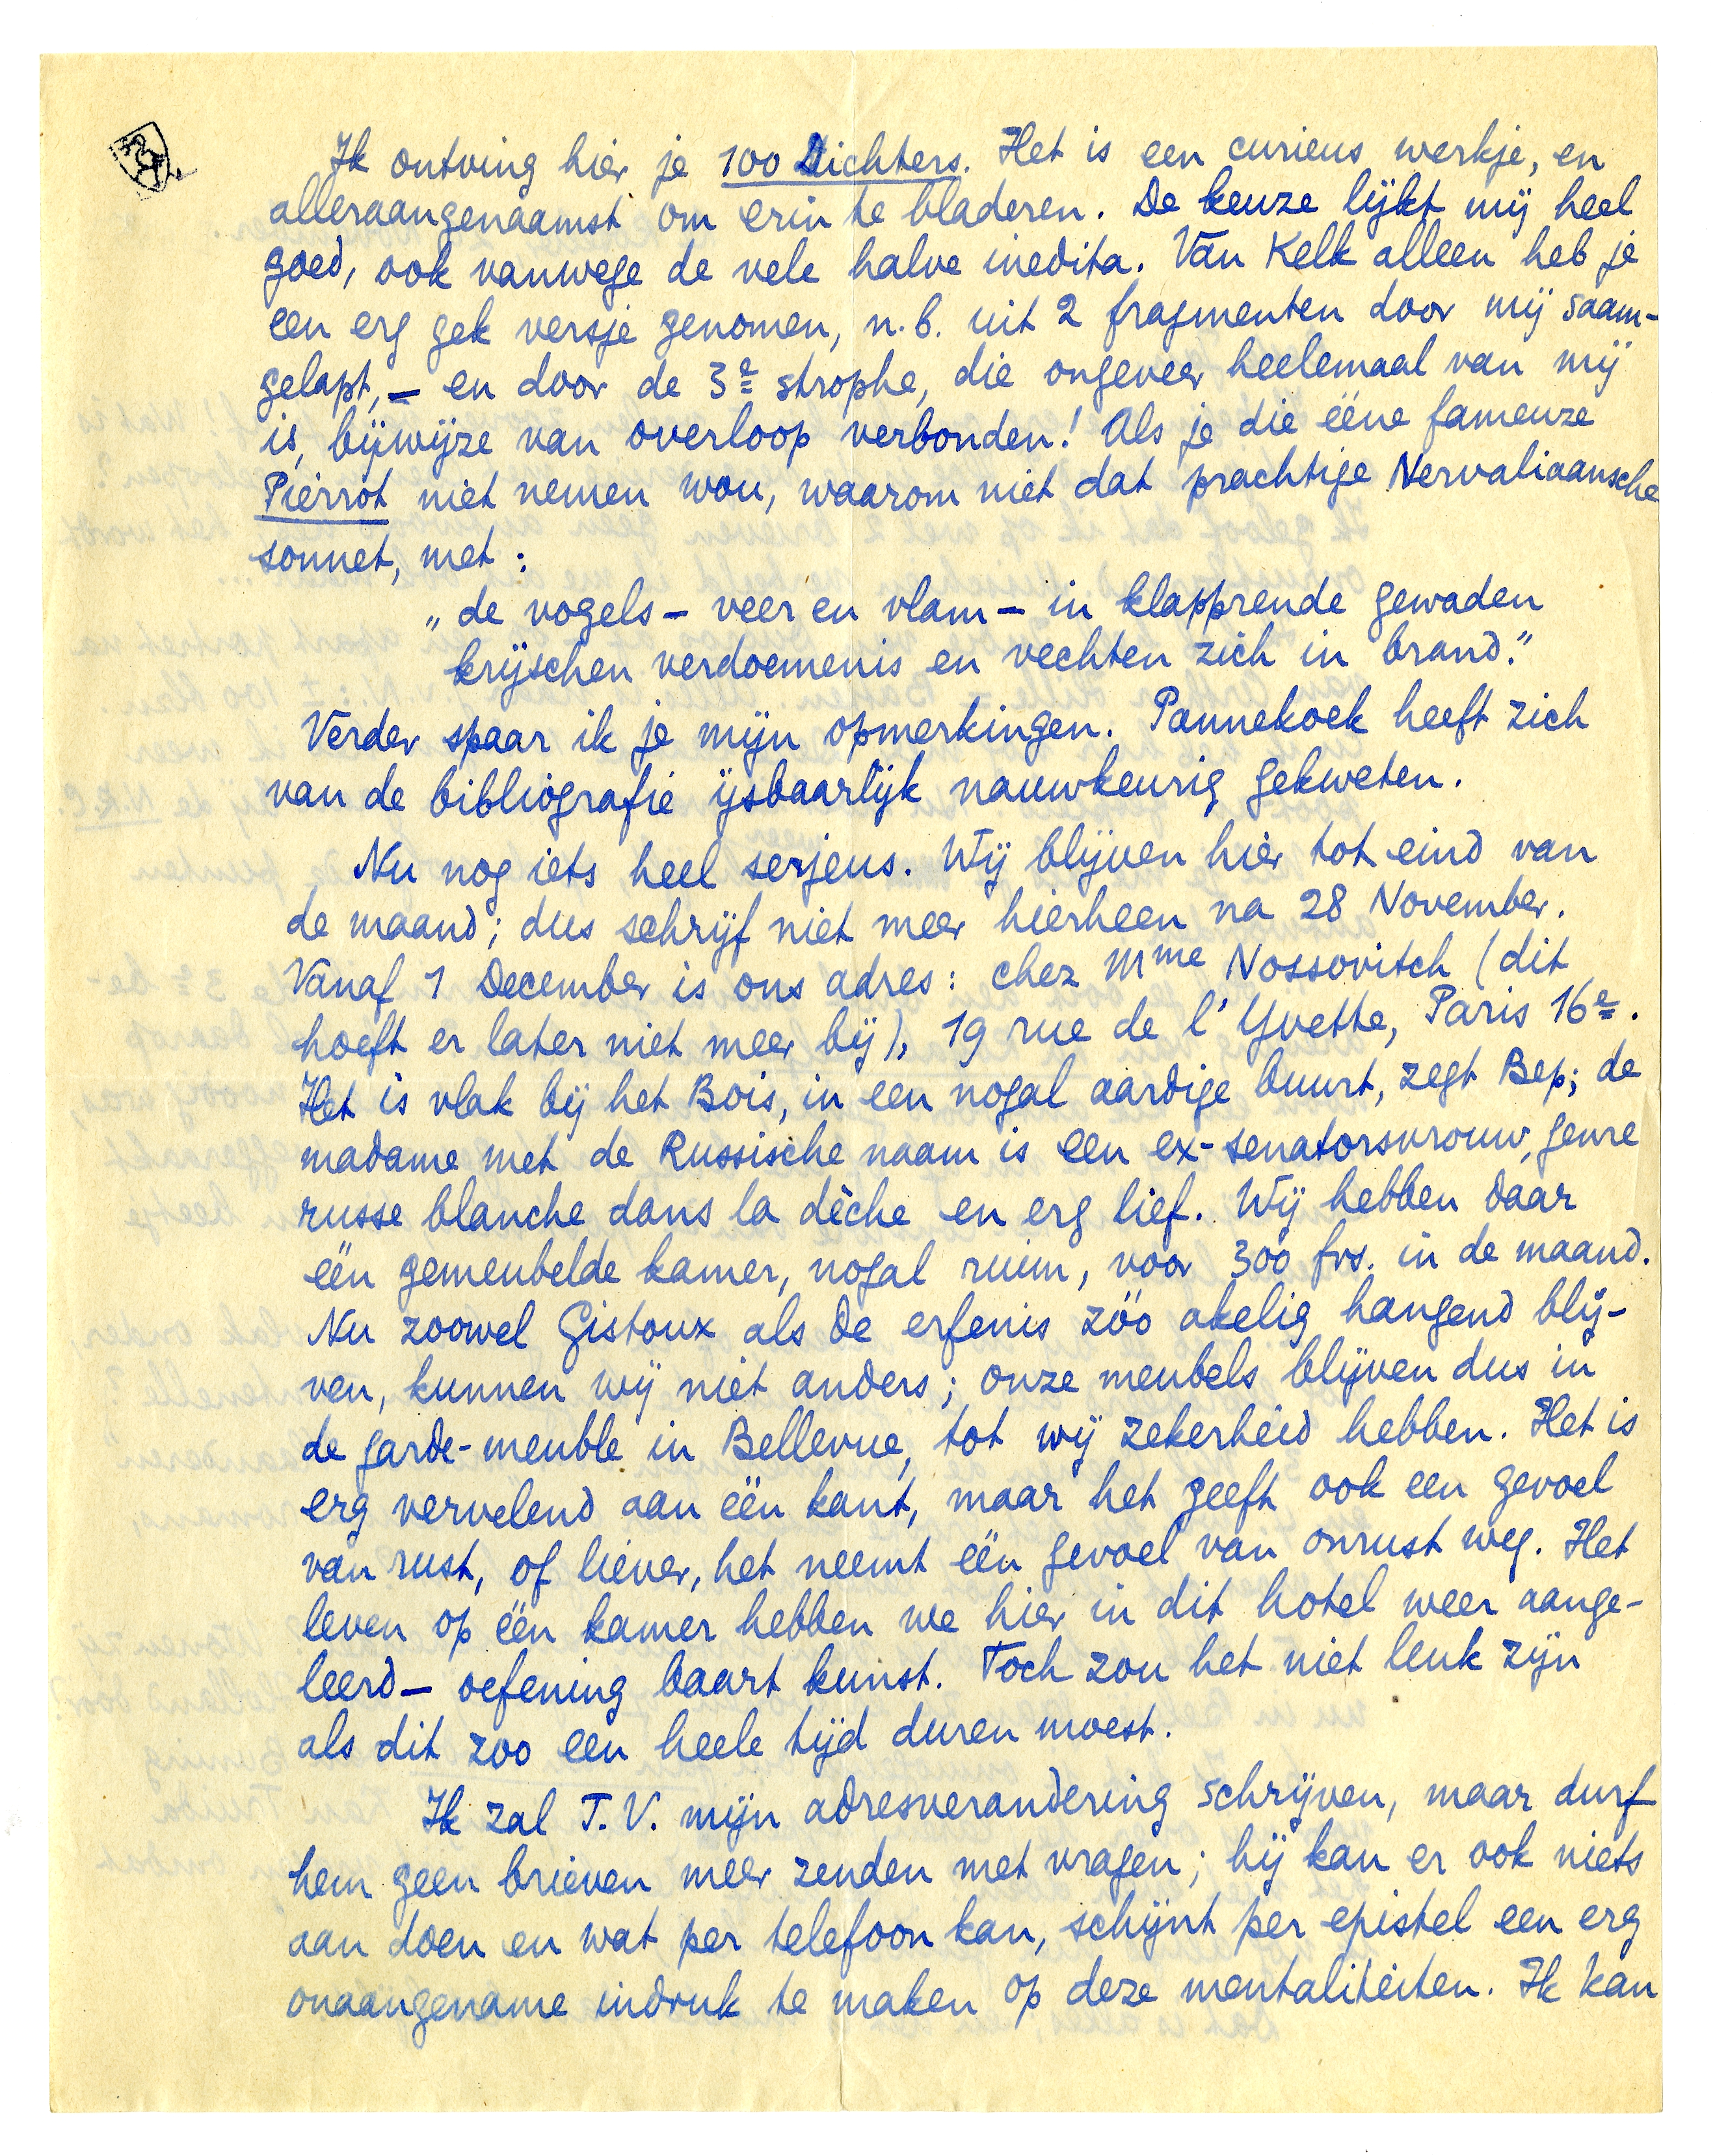 Ik ontving hier je 100 Dichters. Het is een curieus werkje, en
alleraangenaamst om erin te bladeren. De keuze lijkt mij heel
goed, ook vanwege de vele halve inedita. Van Kelk alleen heb je
een erg gek versje genomen, n.b. uit 2 fragmenten door mij saam-
gelapt, – en door de 3e strophe, die ongeveer heelemaal van mij
is, bijwijze van overloop verbonden! Als je die ééne fameuze
Pierrot niet nemen wou, waarom niet dat prachtige Nervaliaansche
sonnet, met:
„de vogels – veer en vlam – in klapprende gewaden
krijschen verdoemenis en vechten zich in brand.”
Verder spaar ik je mijn opmerkingen. Pannekoek heeft zich
van de bibliografie ijsbaarlijk nauwkeurig gekweten.
Nu nog iets heel serjeus. Wij blijven hier tot eind van
de maand; dus schrijf niet meer hierheen na 28 November.
Vanaf 1 December is ons adres: chez Mme Nossovitch (dit
hoeft er later niet meer bij), 19 rue de l'Yvette, Paris 16e.
Het is vlak bij het Bois, in een nogal aardige buurt, zegt Bep; de
madame met de Russische naam is een ex-senatorsvrouw, genre
russe blanche dans la dèche en erg lief. Wij hebben daar
één gemeubelde kamer, nogal ruim, voor 300 frs. in de maand.
Nu zoowel Gistoux als de erfenis zóó akelig hangend blij-
ven, kunnen wij niet anders; onze meubels blijven dus in
de garde-meuble in Bellevue, tot wij zekerheid hebben. Het is
erg vervelend aan één kant, maar het geeft ook een gevoel
van rust, of liever, het neemt één gevoel van onrust weg. Het
leven op één kamer hebben we hier in dit hotel weer aange-
leerd – oefening baart kunst. Toch zou het niet leuk zijn
als dit zoo een heele tijd duren moest.
Ik zal T.V. mijn adresverandering schrijven, maar durf
hem geen brieven meer zenden met vragen; hij kan er ook niets
aan doen en wat per telefoon kan, schijnt per epistel een erg
onaangename indruk te maken op deze mentaliteiten. Ik kan